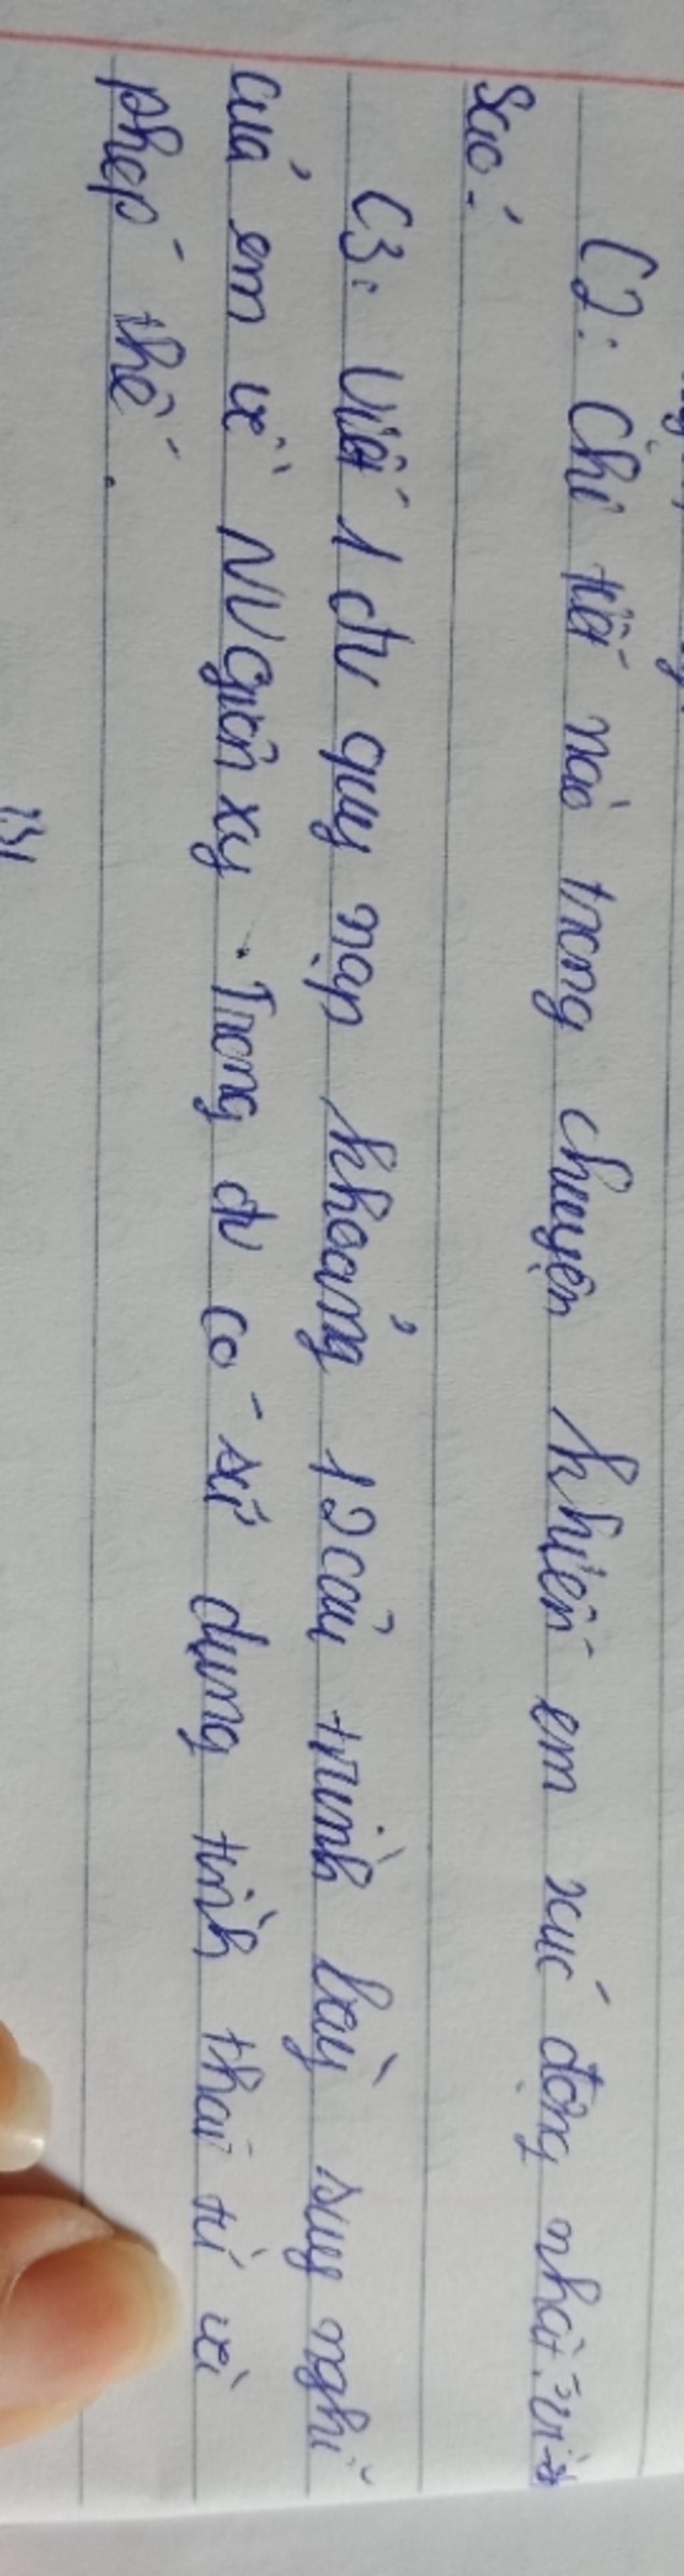 C2: Chi tiết nào trong chuyện khiến em xúc động nhất? Vì
sao?
C3: Viết 1 đv quy nạp khoảng 12 câu trình bày suy nghĩ
của em về NV Giôn xy. Trong đv có sử dụng tình thái từ và
phép thế.